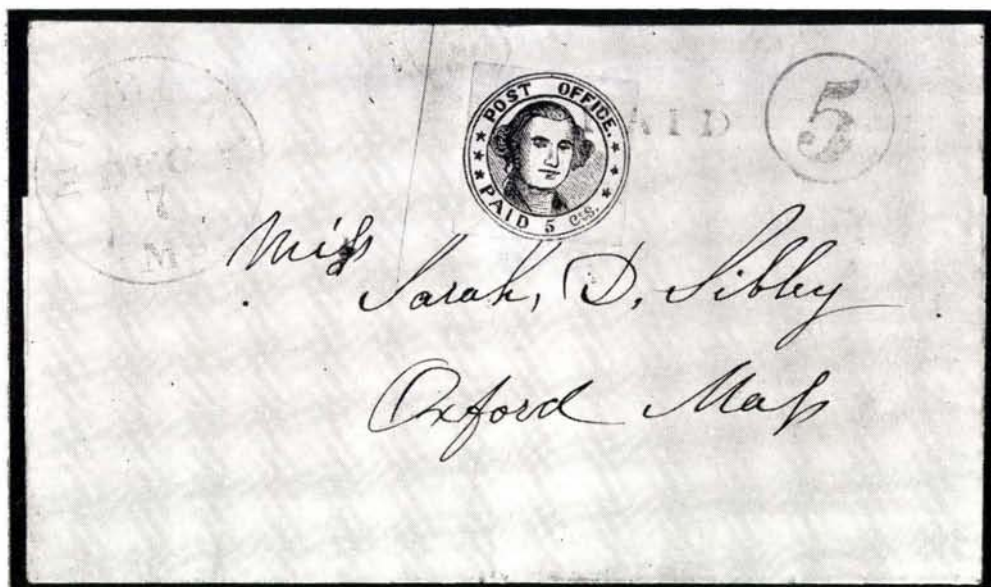 POST OFFICE.
PAID 5 Cts.
PAID 5
DEC
7
M
Miſs
Sarah, D, Sibley
Oxford Maſs